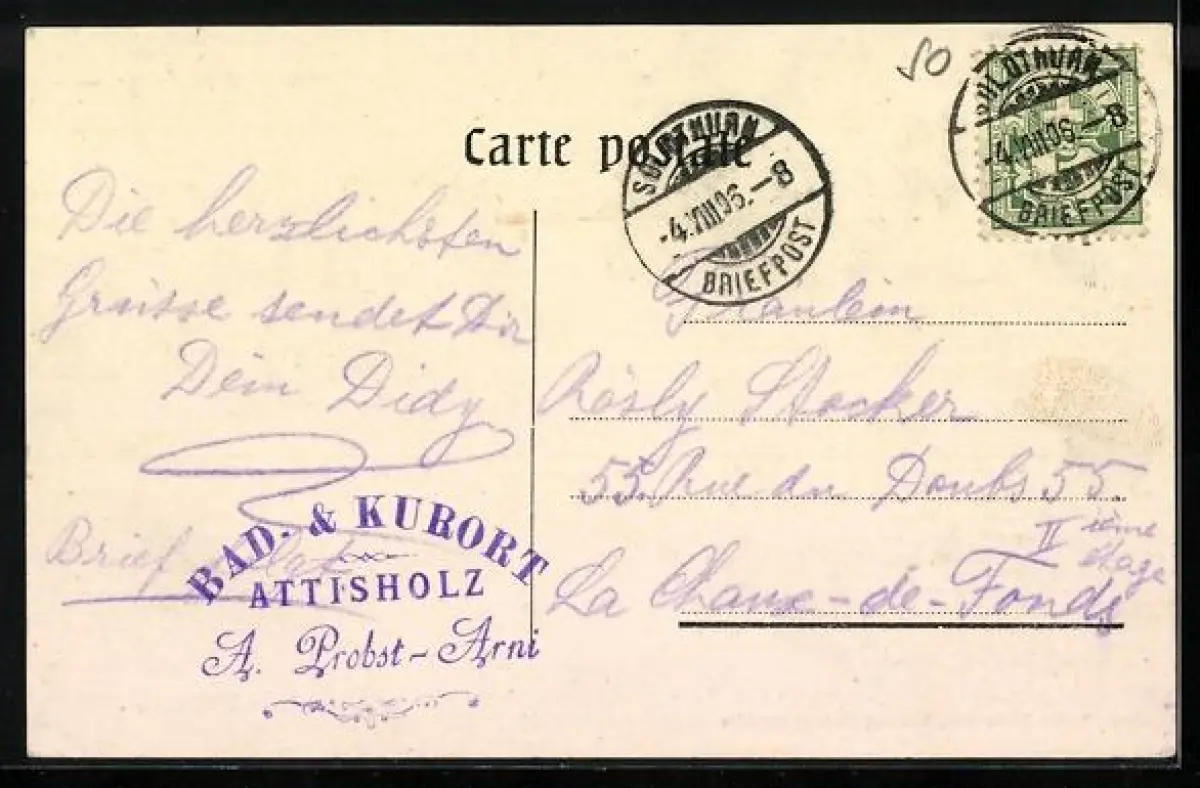 SO
Carte postale
SOLOTHURN
-4.VIII.06.-8
BRIEFPOST
SOLOTHURN
-4.VIII.06.-8
BRIEFPOST
Die herzlichsten
Grüsse sendet Dir
Dein Didy
Brief
BAD- & KURORT
ATTISHOLZ
A. Probst-Arni
Fräulein
Rösly Stocker
55. Rue du Doubs 55.
II ième étage
La Chaux-de-Fonds